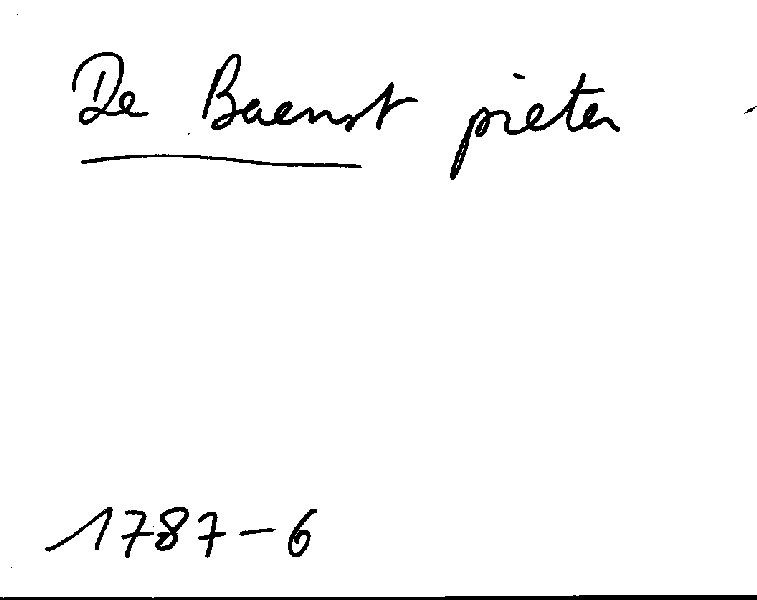 De Baenst pieter
1787-6